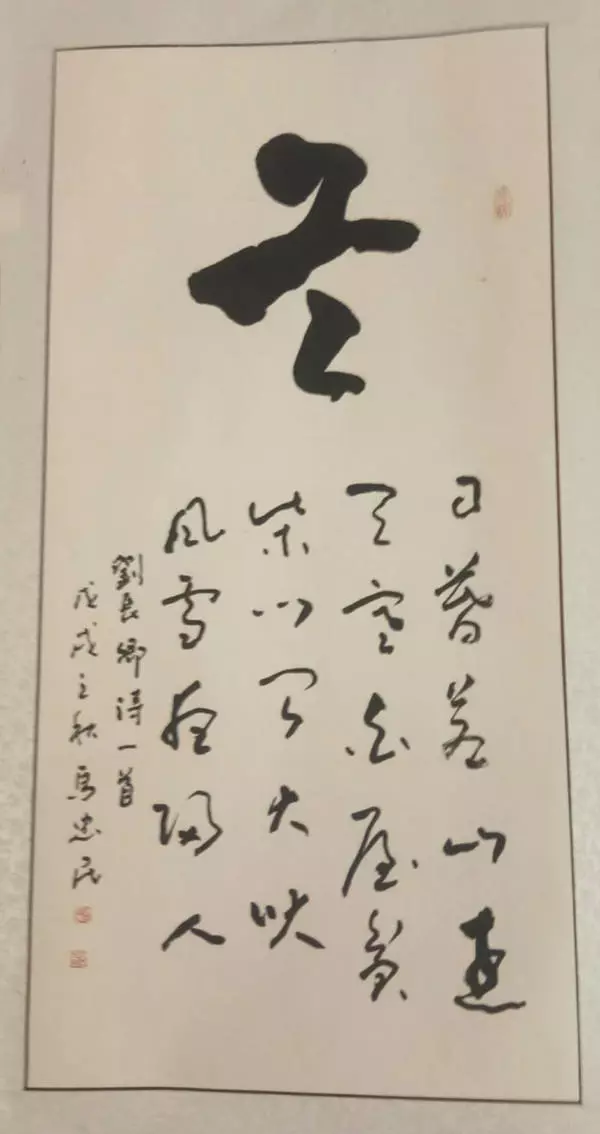 日暮蒼山遠
天寒白屋貧
柴門聞犬吠
風雪夜歸人
劉長卿詩一首
戊戌之秋馬忠民